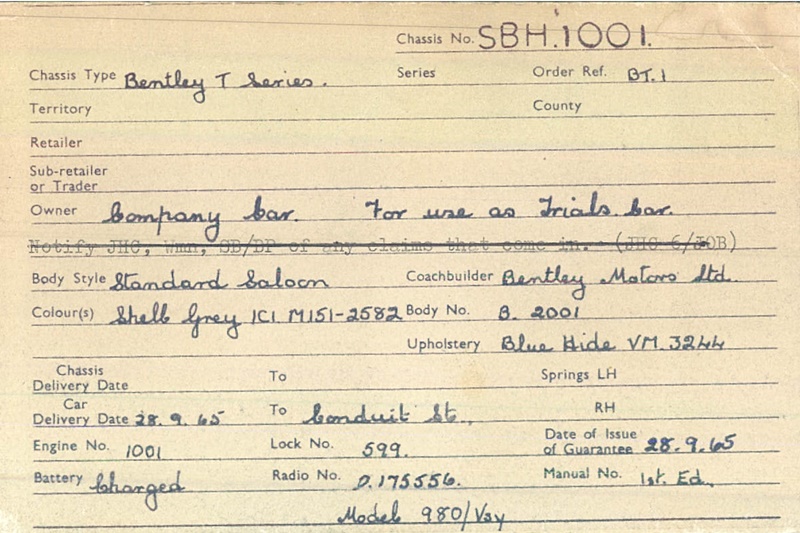 Chassis No. SBH.1001.
Chassis Type Bentley T Series. Series Order Ref. BT.1
Territory County
Retailer
Sub-retailer
or Trader
Owner Company Car. For use as Trials Car.
Notify JHG, Wmn, SB/DP of any claims that come in. (JHG 6/JOB)
Body Style Standard Saloon Coachbuilder Bentley Motors Ltd.
Colour(s) Shell Grey ICI M151-2582 Body No. B. 2001
Upholstery Blue Hide VM. 3244
Chassis
Delivery Date To Springs LH
Car
Delivery Date 28.9.65 To Conduit St., RH
Engine No. 1001 Lock No. 599. Date of Issue
of Guarantee 28.9.65
Battery Charged Radio No. D.175556. Manual No. 1st. Ed.
Model 980/Vsy